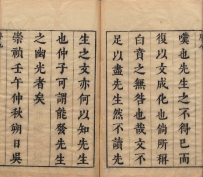 嘆也先生之不得已而
復以文成化也倘所稱
白賁之無咎也哉文不
足以盡先生然不讀先
生之文亦何以知先生
也仲子可謂能發先生
之幽光者矣
崇禎壬午仲秋朔日吳